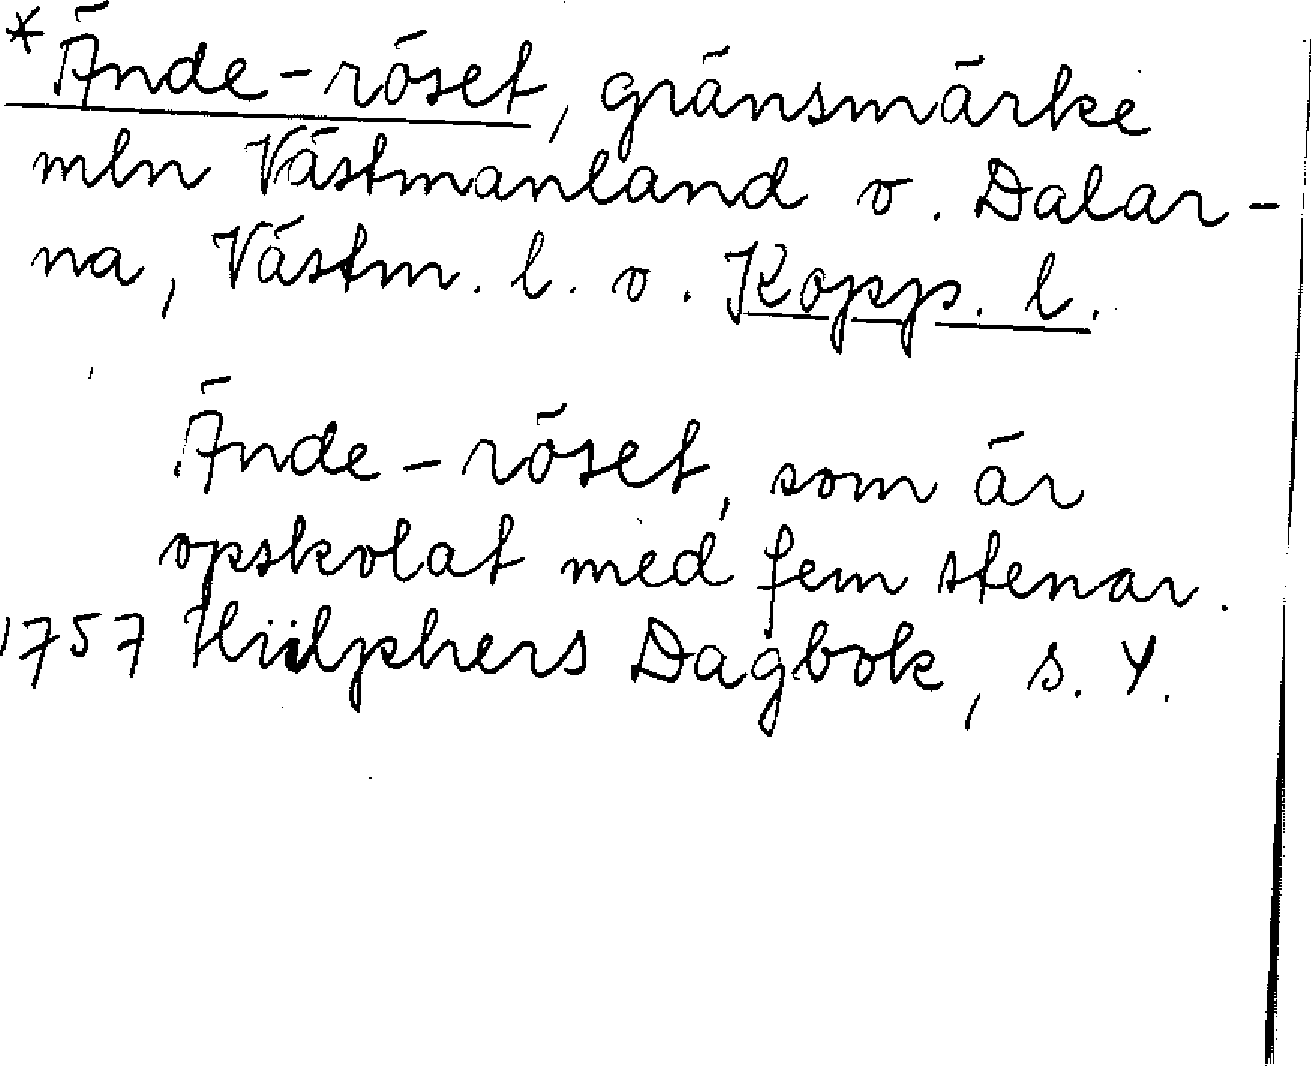 *Ände-röset, gränsmärke
mln Västmanland o. Dalar-
na, Västm. l. o. Kopp. l.
Ände-röset, som är
opskolat med fem stenar.
1757 Hülphers Dagbok, s. Y.